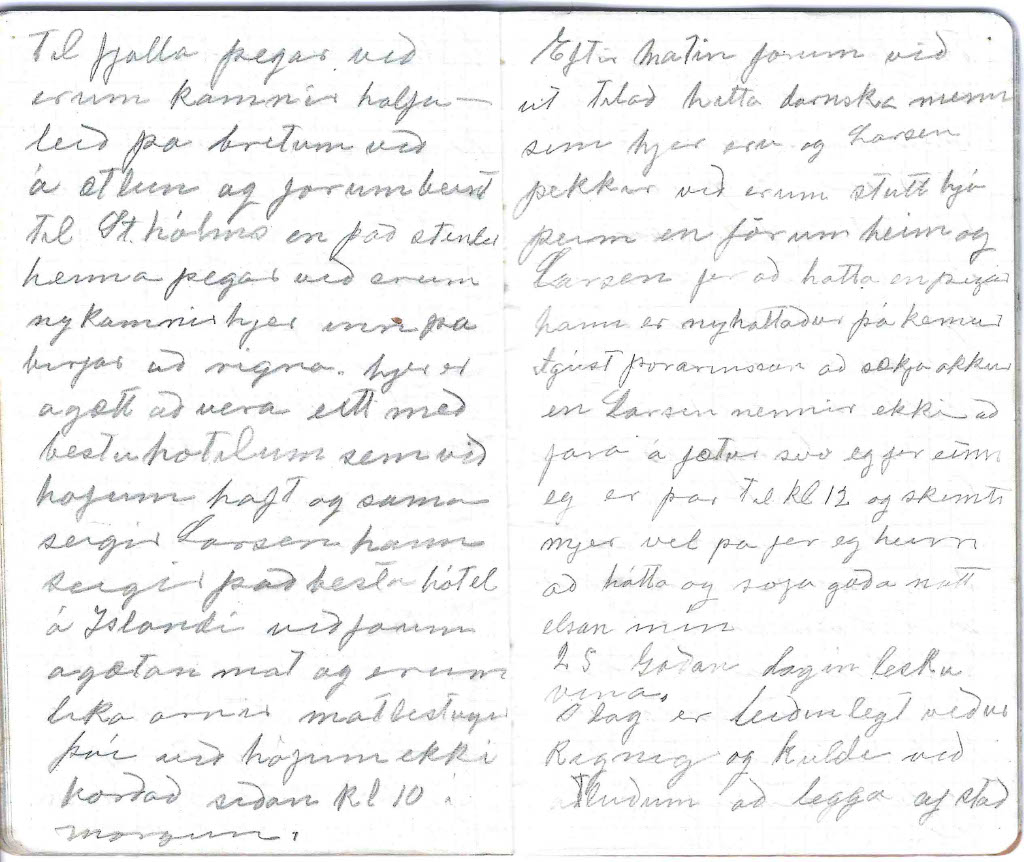 Til fjalla þegar við
erum kamnir halfa-
leið þa bretum við
á ætlun og forum beint
til St. hólms en það stendur
heima þegar við erum
nykamnir hjer inn þa
birjar að rigna. hjer er
agætt að vera eitt með
bestu hotelum sem við
hofum haft og sama
seigir Larsen hann
seigir það besta hótel
á Islandi við faum
agætan mat og erum
lika ornir matlistugir
því við höfum ekki
borðað siðan kl 10 í
morgun.
Eftir matin forum við
út til að hitta danska menn
sem hjer eru og Larsen
þekkir við erum stutt hjá
þeim en förum heim og
Larsen fer að hatta en þegar
hann er nyhattaður þá kemur
Agúst Þorarinsson að sækja okkur
en Larsen nennir ekki að
fara á fætur svo eg fer einn
eg er þar til kl 12 og skemti
mjer vel þa fer eg heim
að hátta og sofa goða nott
elsan mín
25 Goðan dagin elsku
vina.
I dag er leiðinlegt veður
Rigning og kulde við
ætluðum að legga af stað